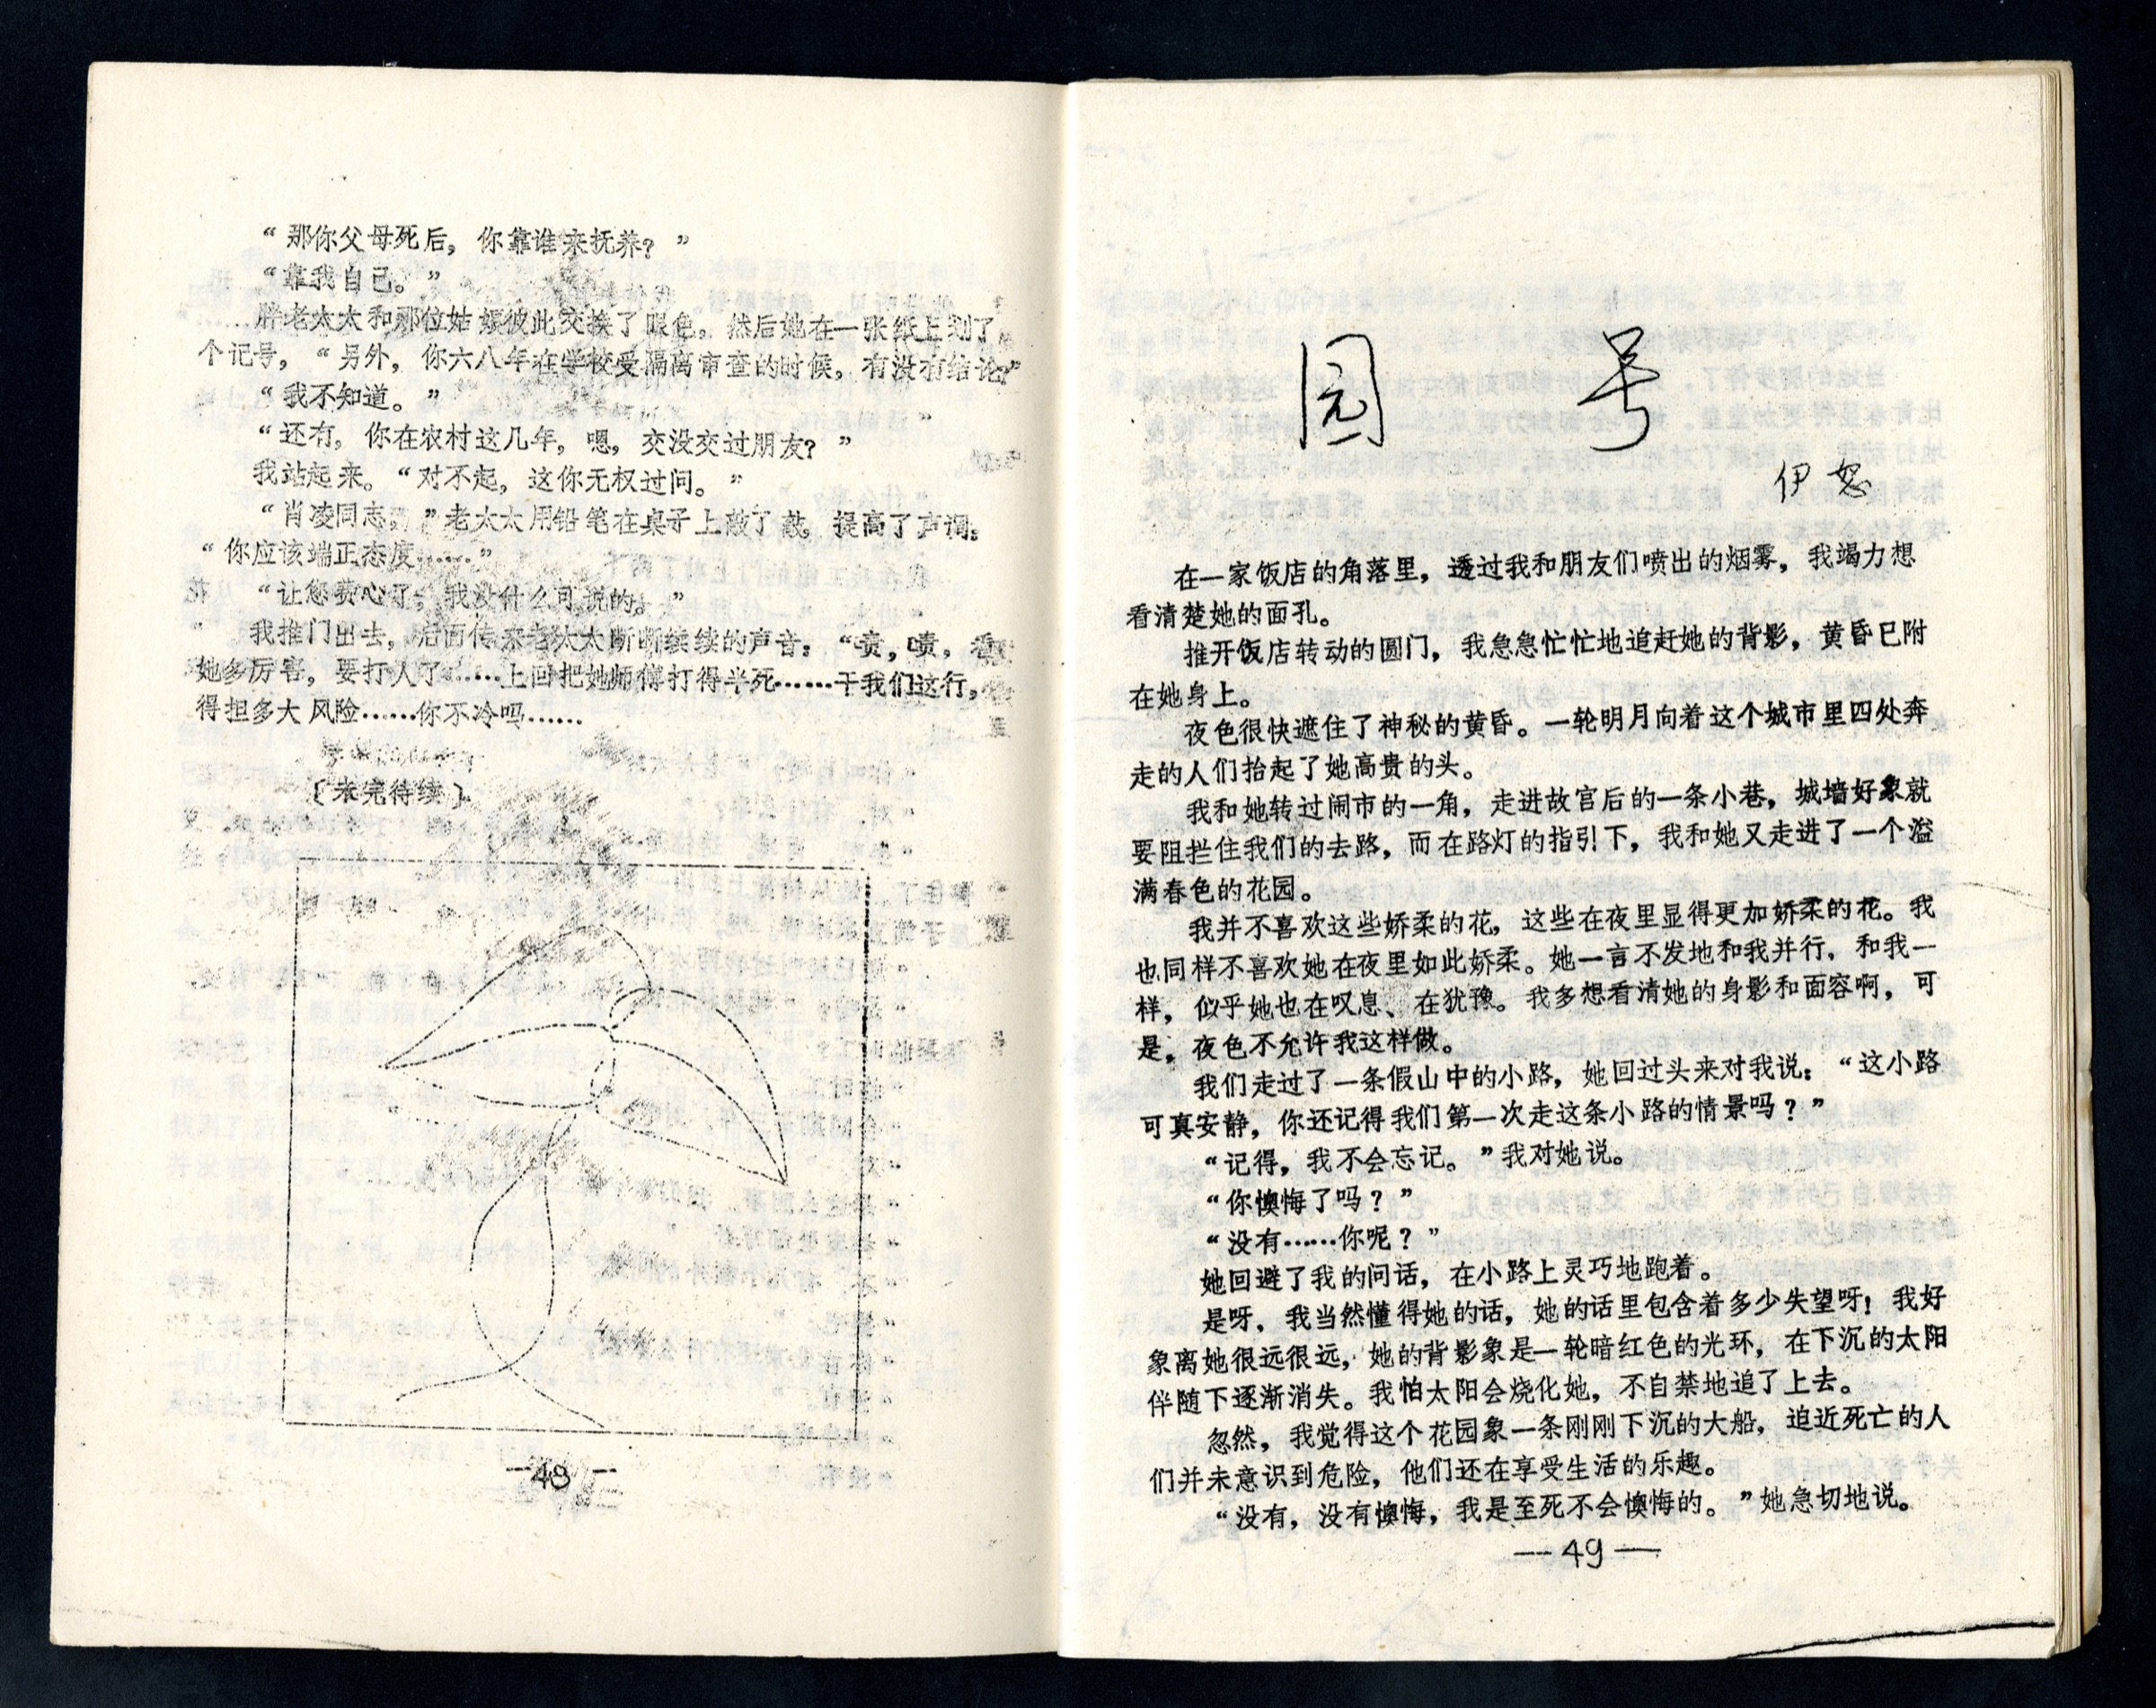 “那你父母死后，你靠谁来抚养？”
“靠我自己。”
胖老太太和那位姑娘彼此交换了眼色。然后她在一张纸上划了
个记号，“另外，你六八年在学校受隔离审查的时候，有没有结论？”
“我不知道。”
“还有，你在农村这几年，嗯，交没交过朋友？”
我站起来。“对不起，这你无权过问。”
“肖凌同志，”老太太用铅笔在桌子上敲了敲，提高了声调：
“你应该端正态度……”
“让您费心了，我没什么可说的。”
我推门出去，后面传来老太太断断续续的声音：“啧，啧，看
她多厉害，要打人了……上回把她师傅打得半死……干我们这行，
得担多大风险……你不冷吗……
〔未完待续〕
—48—
圆号
伊恕
在一家饭店的角落里，透过我和朋友们喷出的烟雾，我竭力想
看清楚她的面孔。
推开饭店转动的圆门，我急急忙忙地追赶她的背影，黄昏已附
在她身上。
夜色很快遮住了神秘的黄昏。一轮明月向着这个城市里四处奔
走的人们抬起了她高贵的头。
我和她转过闹市的一角，走进故宫后的一条小巷，城墙好象就
要阻拦住我们的去路，而在路灯的指引下，我和她又走进了一个溢
满春色的花园。
我并不喜欢这些娇柔的花，这些在夜里显得更加娇柔的花。我
也同样不喜欢她在夜里如此娇柔。她一言不发地和我并行，和我一
样，似乎她也在叹息、在犹豫。我多想看清她的身影和面容啊，可
是，夜色不允许我这样做。
我们走过了一条假山中的小路，她回过头来对我说：“这小路
可真安静，你还记得我们第一次走这条小路的情景吗？”
“记得，我不会忘记。”我对她说。
“你懊悔了吗？”
“没有……你呢？”
她回避了我的问话，在小路上灵巧地跑着。
是呀，我当然懂得她的话，她的话里包含着多少失望呀！我好
象离她很远很远，她的背影象是一轮暗红色的光环，在下沉的太阳
伴随下逐渐消失。我怕太阳会烧化她，不自禁地追了上去。
忽然，我觉得这个花园象一条刚刚下沉的大船，迫近死亡的人
们并未意识到危险，他们还在享受生活的乐趣。
“没有，没有懊悔，我是至死不会懊悔的。”她急切地说。
—49—